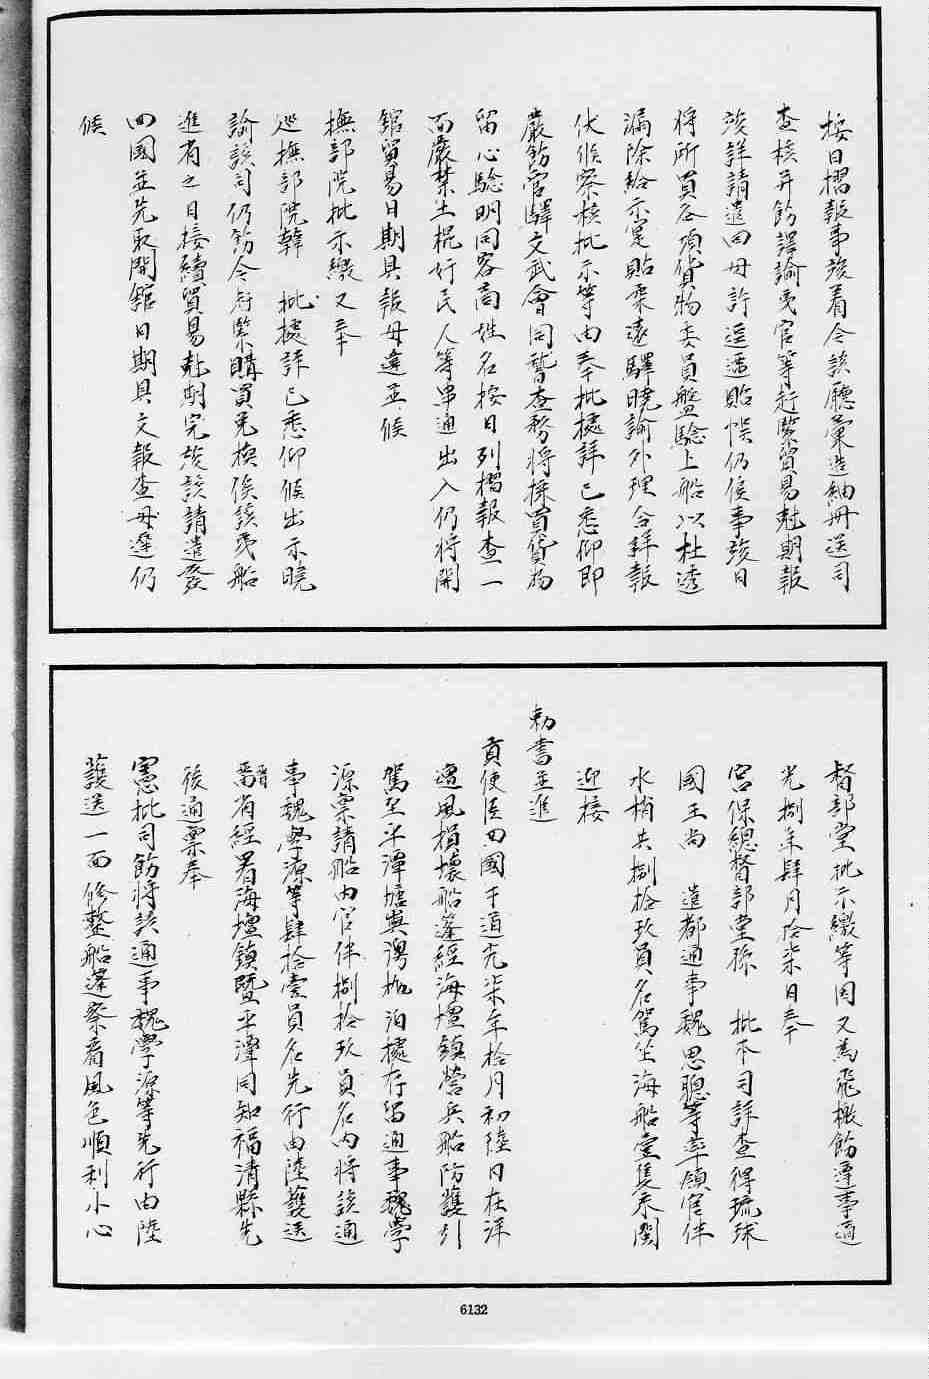 按日摺報事竣着令該廳彙造細冊送司
查核并飭譯諭夷官等赶緊貿易尅期報
竣詳請遣回毋許逗遛貽悞仍俟事竣日
將所買各項貨物委員盤驗上船以杜透
漏除給示寔貼柔遠驛曉諭外理合詳報
伏候察核批示等由奉批據詳已悉仰即
嚴飭官驛文武會同稽查務將採買貨物
留心驗明同客商姓名按日列摺報查一
面嚴禁土棍奸民人等串通出入仍將開
舘貿易日期具報毋違並候
撫部院批示繳又奉
巡撫部院韓　批據詳已悉仰候出示曉
諭該司仍飭令赶緊購買兌換俟該夷船
進有之日接續貿易尅期完竣該請遣發
回國並先取開舘日期具文報查毋違仍
候
督部堂批示繳等因又為飛檄飭遵事道
光捌年肆月拾柒日奉
宮保總督部堂孫　批本司詳查得琉球
國王尚　遣都通事魏思聰等率領官伴
水梢共捌拾玖員名駕坐海船壹隻來閩
迎接
勅書並進
貢使臣回國于道光柒年拾月初陸日在洋
遭風損壞船篷經海壇鎮營兵船防護引
駕至平潭塘與澚抛泊據存留通事魏學
源稟請船內官伴捌拾玖員名內將該通
事魏學源等肆拾壹員名先行由陸護送
晉省經署海壇鎮暨平潭同知福清縣先
後通稟奉
憲批司飭將該通事魏學源等先行由陸
護送一面修整船篷察看風色順利小心
6132